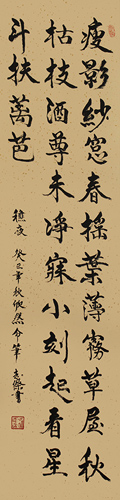 瘦影紗窗春搖葉薄霧草屋秋
枯枝酒尊未凈寐小刻起看星
斗扶萬芭
穗夜 癸巳年秋 然合筆 書